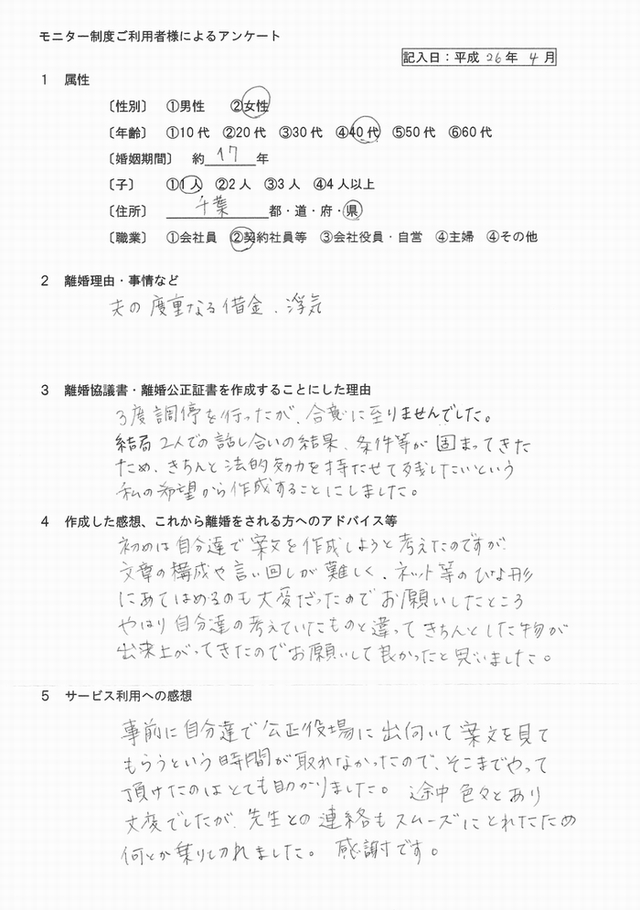 モニター制度ご利用者様によるアンケート
記入日：平成 26年 4月
1 属性
〔性別〕 ①男性 ②女性
〔年齢〕 ①10代 ②20代 ③30代 ④40代 ⑤50代 ⑥60代
〔婚姻期間〕 約 17 年
〔子〕 ①1人 ②2人 ③3人 ④4人以上
〔住所〕 千葉 都・道・府・県
〔職業〕 ①会社員 ②契約社員等 ③会社役員・自営 ④主婦 ④その他
2 離婚理由・事情など
夫の度重なる借金、浮気
3 離婚協議書・離婚公正証書を作成することにした理由
3度調停を行ったが、合意に至りませんでした。
結局2人での話し合いの結果、条件等が固まってきた
ため、きちんと法的効力を持たせて残したいという
私の希望から作成することにしました。
4 作成した感想、これから離婚をされる方へのアドバイス等
初めは自分達で案文を作成しようと考えたのですが
文章の構成や言い回しが難しく、ネット等のひな形
にあてはめるのも大変だったのでお願いしたところ
やはり自分達の考えていたものと違ってきちんとした物が
出来上がってきたのでお願いして良かったと思いました。
5 サービス利用への感想
事前に自分達で公正役場に出向いて案文を見て
もらうという時間が取れなかったので、そこまでやって
頂けたのはとても助かりました。 途中色々とあり
大変でしたが、先生との連絡もスムーズにとれたため
何とか乗り切れました。 感謝です。